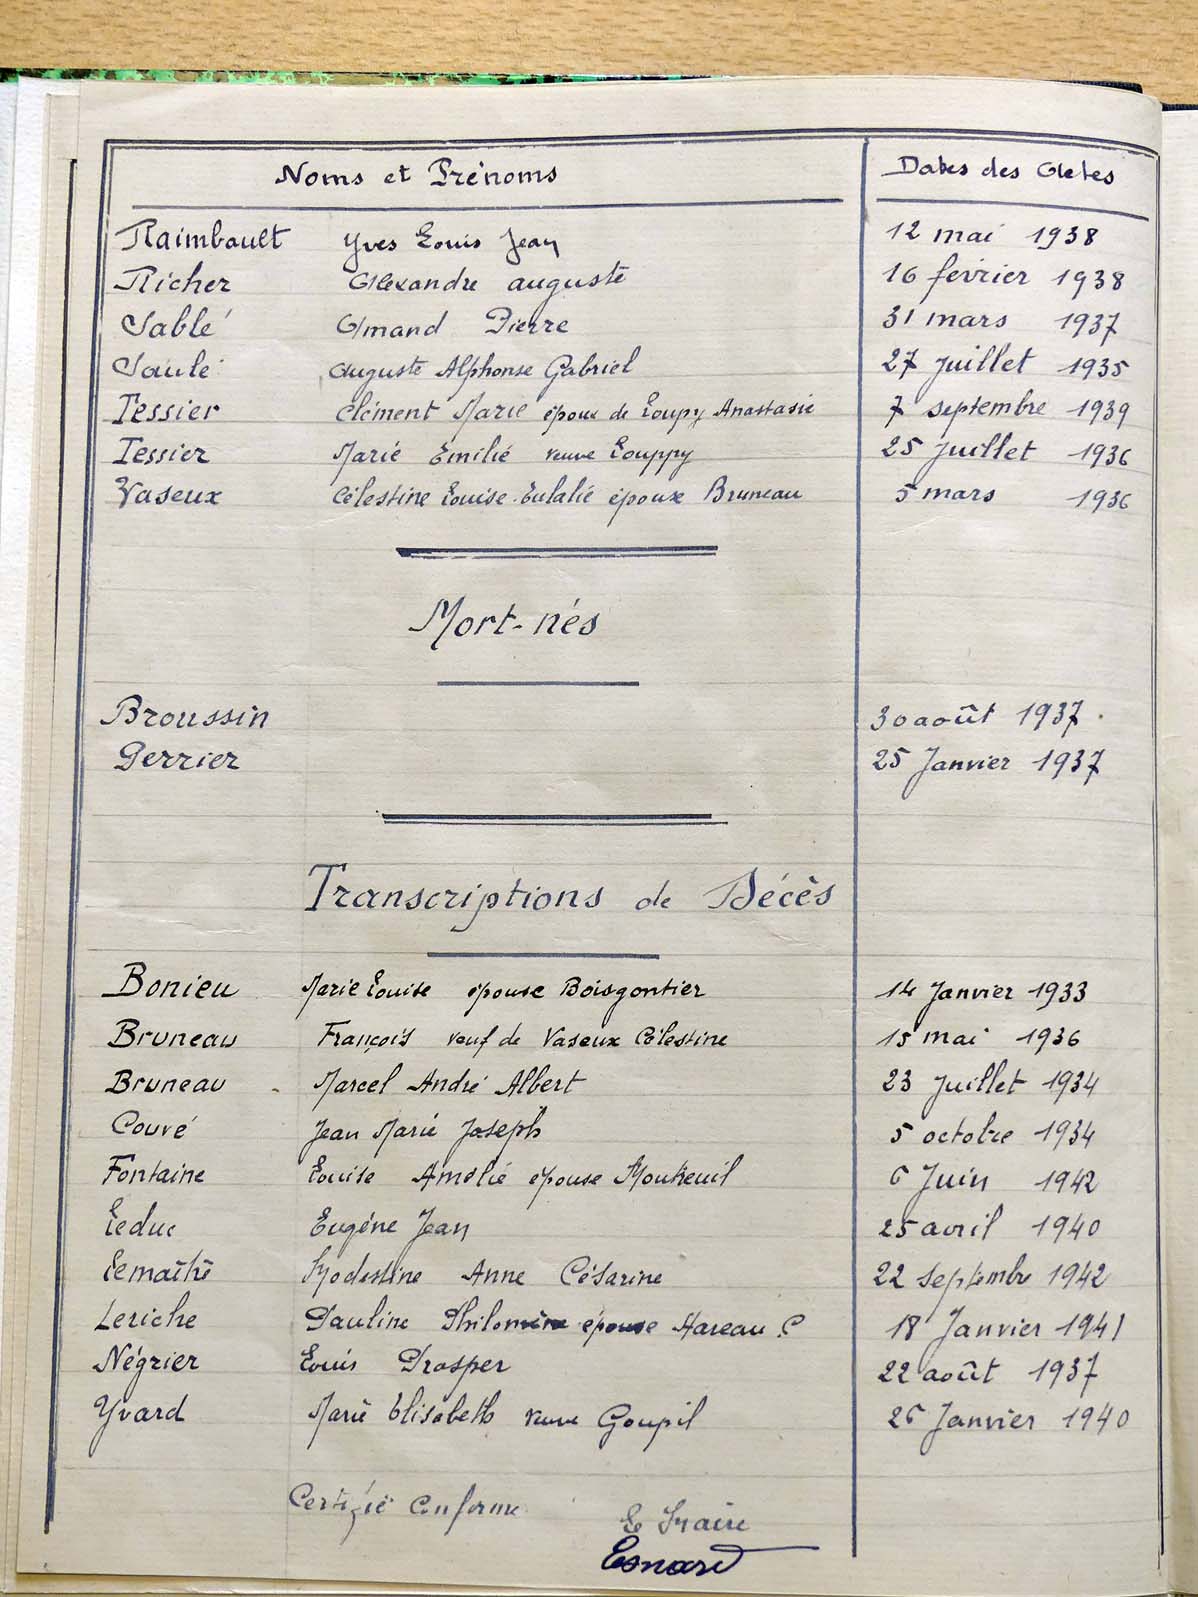 Noms et Prénoms Dates des Actes
Raimbault Yves Louis Jean 12 mai 1938
Richer Alexandre auguste 16 fevrier 1938
Sablé Amand Pierre 31 mars 1937
Saulé auguste Alphonse Gabriel 27 Juillet 1935
Tessier Clément Marie époux de Loupy Anastasie 7 septembre 1939
Tessier Marie Emilie veuve Louppy 25 Juillet 1936
Vaseux Célestine Louise Eulalie épouse Bruneau 5 mars 1936
Mort-nés
Broussin 30 août 1937
Perrier 25 Janvier 1937
Transcriptions de Décès
Bonieu Marie Louise épouse Boisgontier 14 Janvier 1933
Bruneau François veuf de Vaseux Célestine 15 mai 1936
Bruneau Marcel André Albert 23 Juillet 1934
Couvé Jean Marie Joseph 5 octobre 1934
Fontaine Louise Amélie épouse 6 Juin 1942
Leduc Eugène Jean 25 avril 1940
Lemaître Modestine Anne Césarine 22 septembre 1942
Leriche Pauline Philomène épouse Hareau P 18 Janvier 1941
Négrier Louis Prosper 22 août 1937
Yvard Marie Elisabeth veuve Goupil 26 Janvier 1940
Certifié Conforme
Le Maire
Esnard